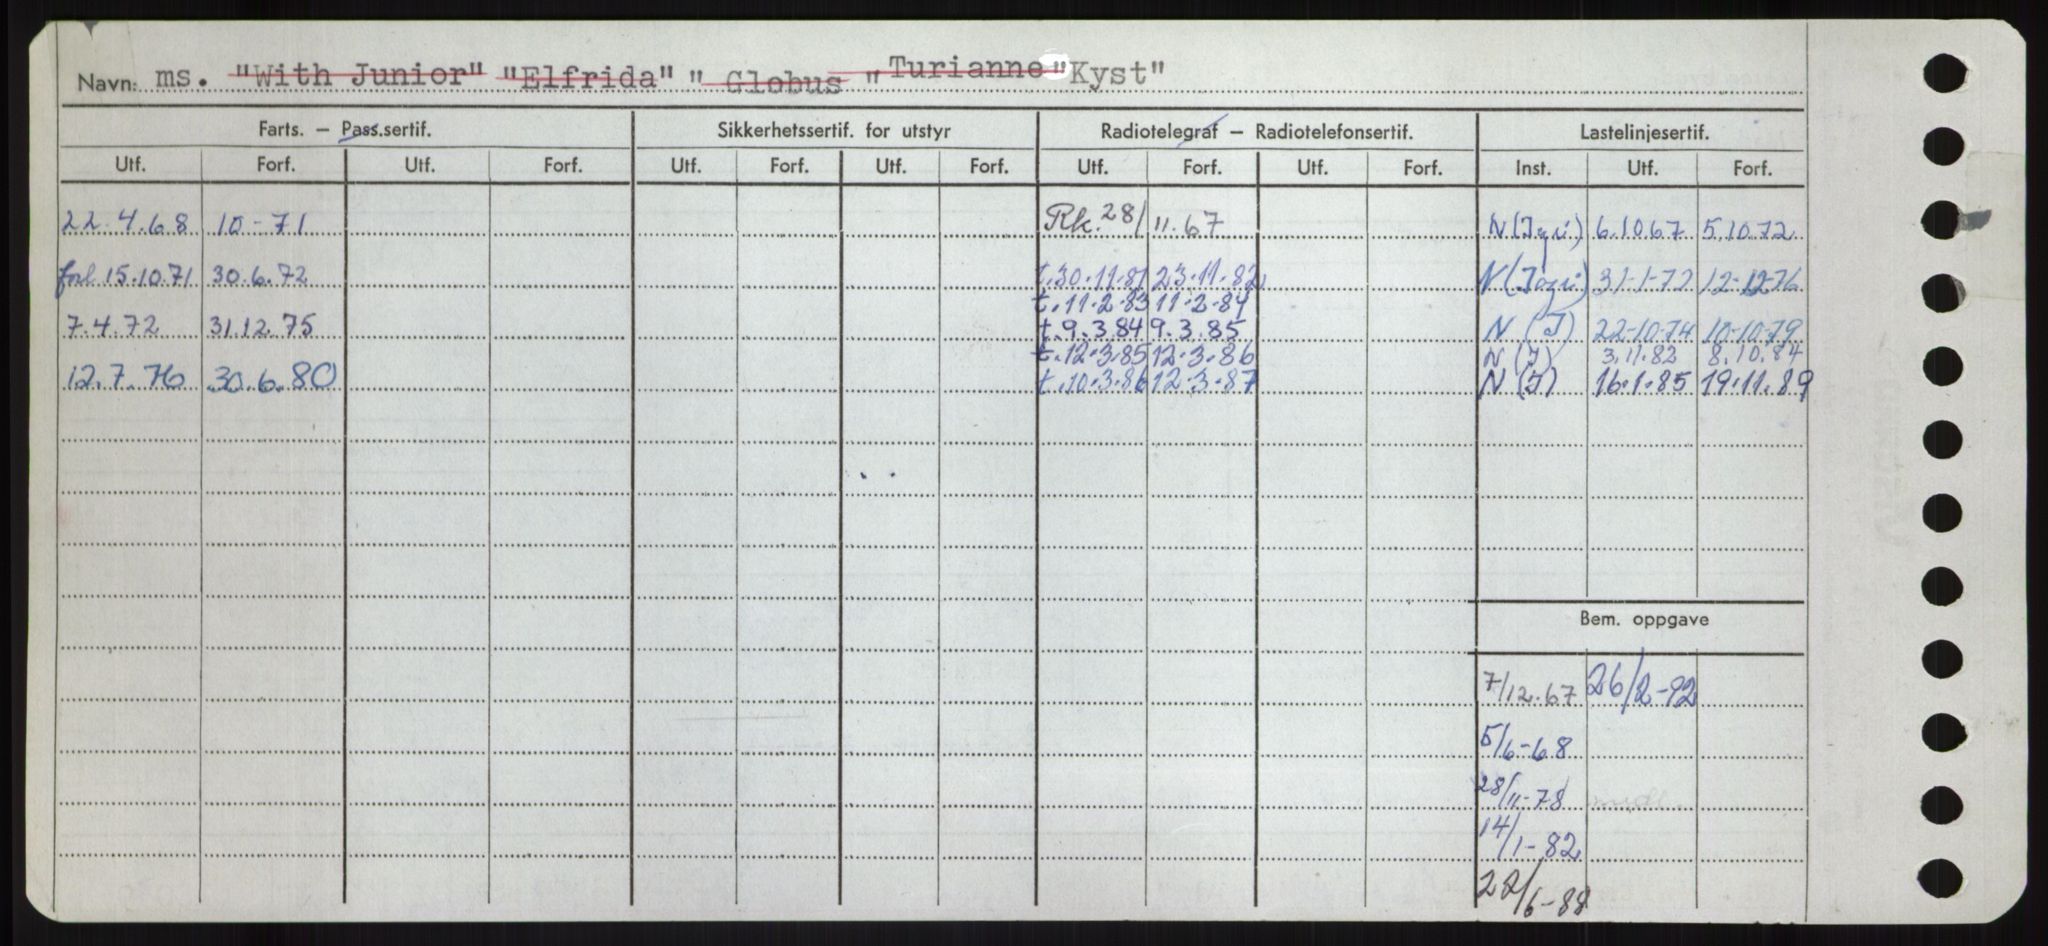 Navn: ms. "With Junior" "Elfrida" " Globus " Turianne "Kyst"
Farts. – Pass.sertif. Sikkerhetssertif. for utstyr Radiotelegraf – Radiotelefonsertif. Lastelinjesertif.
Utf. Forf. Utf. Forf. Utf. Forf. Utf. Forf. Utf. Forf. Utf. Forf. Inst. Utf. Forf.
22.4.68 10-71 Rk. 28/11.67 N 6.10.67 5.10.72
15.10.71 30.6.72 t.30.11.81 23.11.82 N 31-1-72 12-12-76
t.11.2.83 11.2.84
7.4.72 31.12.75 t.9.3.84 9.3.85 N (I) 22-10-74 10-10-79
t.12.3.85 12.3.86 N (I) 3.11.83 8.10.84
12.7.76 30.6.80 t.10.3.86 12.3.87 N (I) 16.1.85 19.11.89
Bem. oppgave
7/12.67 26/2-92
5/6-68
28/11-78
14/1-82
22/6-88